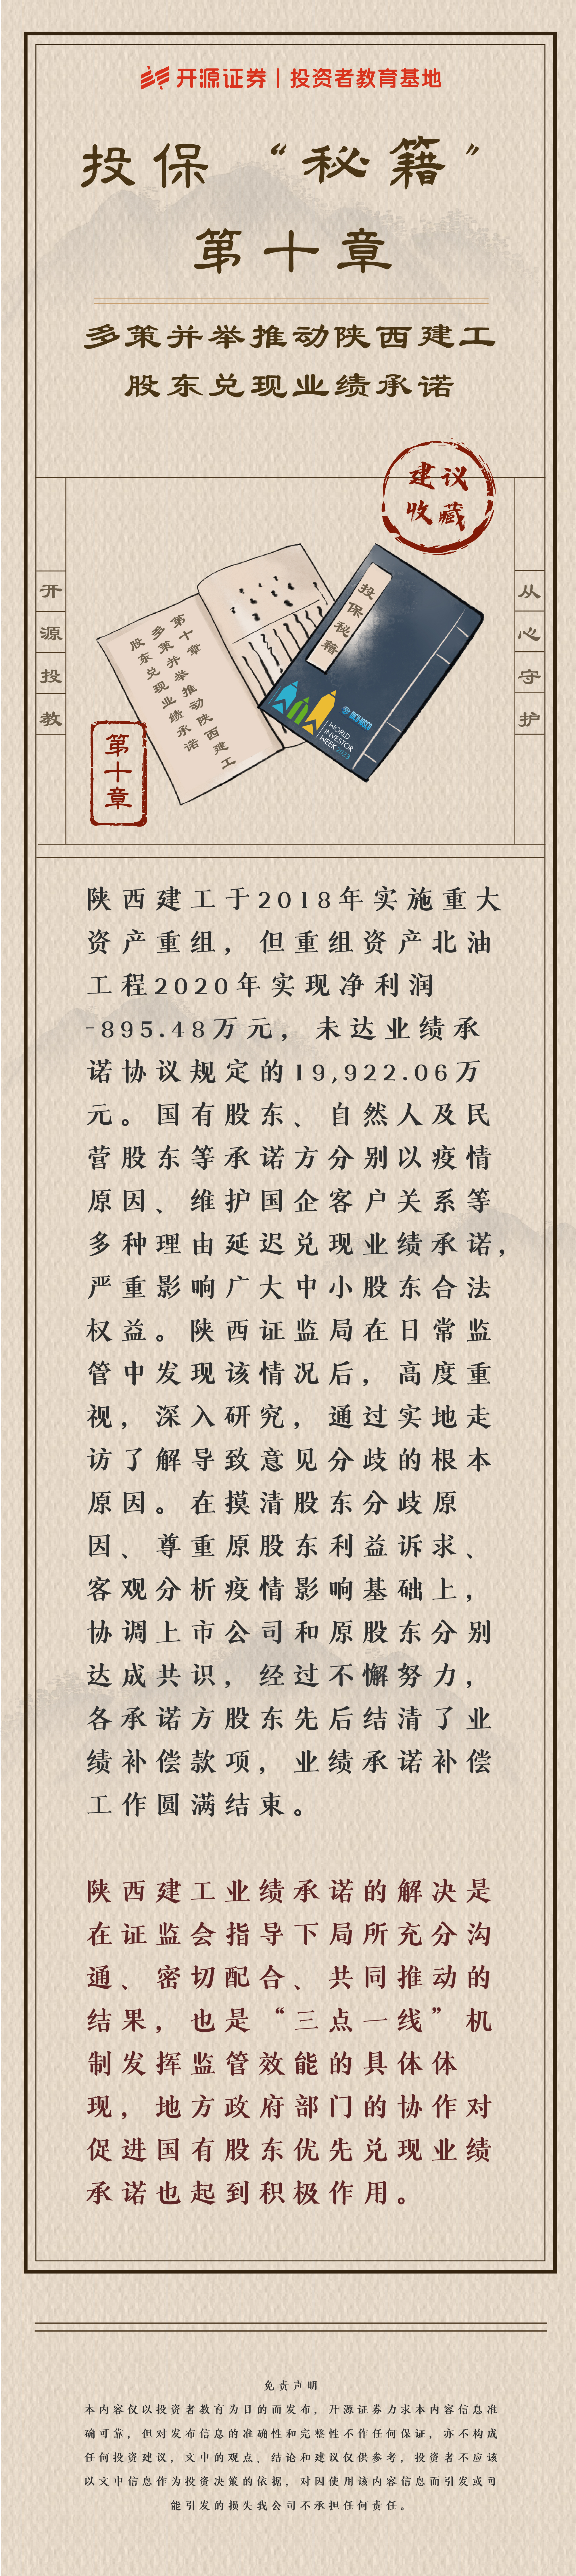 开源证券｜投资者教育基地
投保“秘籍”
第十章
多策并举推动陕西建工
股东兑现业绩承诺
建议
收藏
开源投教
从心守护
第十章
多策并举推动陕西建工
股东兑现业绩承诺
投保秘籍
WORLD
INVESTOR
WEEK 2023
第十章
陕西建工于2018年实施重大
资产重组，但重组资产北油
工程2020年实现净利润
-895.48万元，未达业绩承
诺协议规定的19,922.06万
元。国有股东、自然人及民
营股东等承诺方分别以疫情
原因、维护国企客户关系等
多种理由延迟兑现业绩承诺，
严重影响广大中小股东合法
权益。陕西证监局在日常监
管中发现该情况后，高度重
视，深入研究，通过实地走
访了解导致意见分歧的根本
原因。在摸清股东分歧原
因、尊重原股东利益诉求、
客观分析疫情影响基础上，
协调上市公司和原股东分别
达成共识，经过不懈努力，
各承诺方股东先后结清了业
绩补偿款项，业绩承诺补偿
工作圆满结束。
陕西建工业绩承诺的解决是
在证监会指导下局所充分沟
通、密切配合、共同推动的
结果，也是“三点一线”机
制发挥监管效能的具体体
现，地方政府部门的协作对
促进国有股东优先兑现业绩
承诺也起到积极作用。
免责声明
本内容仅以投资者教育为目的而发布，开源证券力求本内容信息准
确可靠，但对发布信息的准确性和完整性不作任何保证，亦不构成
任何投资建议，文中的观点、结论和建议仅供参考，投资者不应该
以文中信息作为投资决策的依据，对因使用该内容信息而引发或可
能引发的损失我公司不承担任何责任。